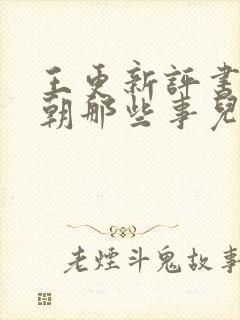 王更新評書
朝那些事兒
老煙斗鬼故事